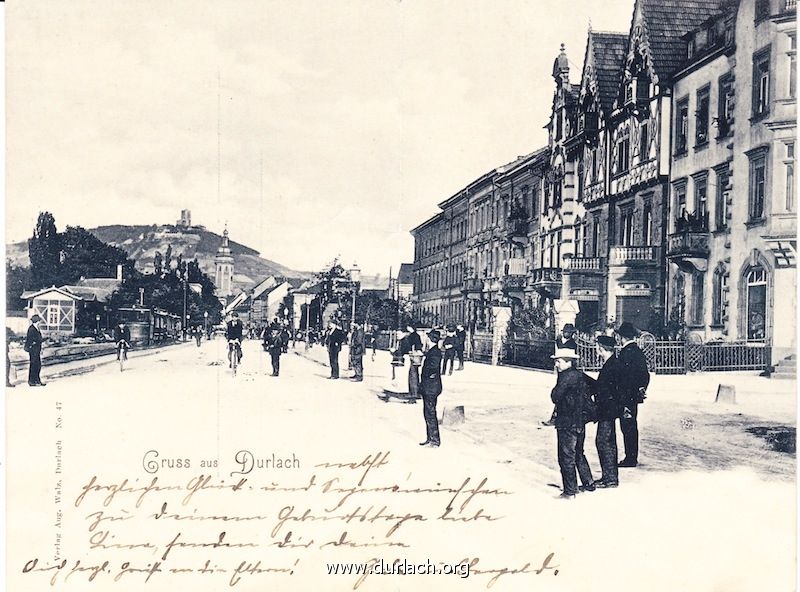 Gruss aus Durlach nebst
herzlichen Glück- und Segenswünschen
zu deinem Geburtstage liebe
Lina, senden dir deine
Auch herzl. Grüße an die Eltern!
www.durlach.org
Verlag Aug. Walz, Durlach No. 47